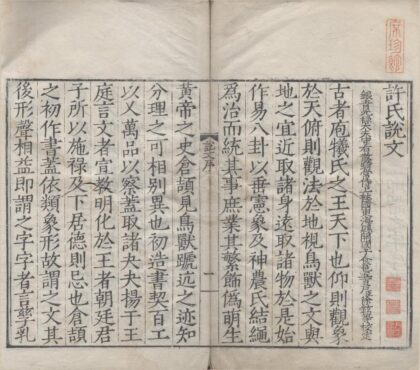 許氏說文
銀青光祿大夫守右散騎常侍上柱國東海縣開國子食邑五百戶臣徐鉉等
古者庖犧氏之王天下也仰則觀象
於天俯則觀法於地視鳥獸之文與
地之宜近取諸身遠取諸物於是始
作易八卦以垂憲象及神農氏結繩
爲治而統其事庶業其繁飾僞萌生
說文序
一
黃帝之史倉頡見鳥獸蹏迒之迹知
分理之可相別異也初造書契百工
以乂萬品以察蓋取諸夬夬揚于王
庭言文者宣教明化於王者朝廷君
子所以施祿及下居德則忌也倉頡
之初作書蓋依類象形故謂之文其
後形聲相益即謂之字字者言孳乳